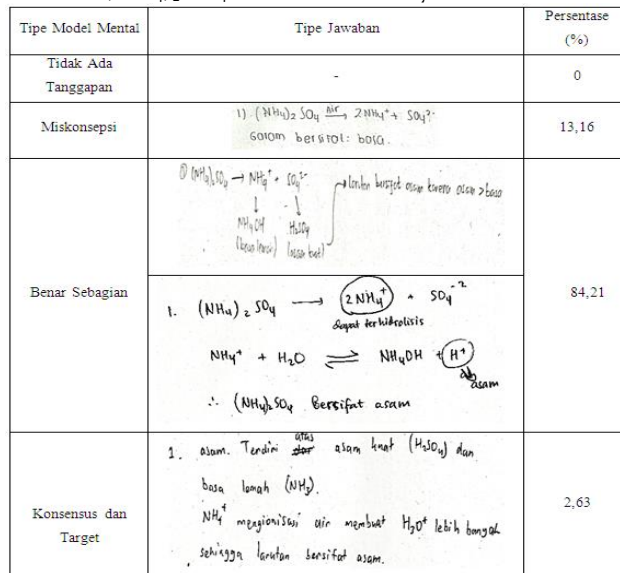 Tipe Model Mental
Tipe Jawaban
Persentase
(%)
Tidak Ada
Tanggapan
-
0
Miskonsepsi
1) (NH4)2 SO4 air→ 2NH4+ + SO4²-
Garam bersifat: basa.
13,16
Benar Sebagian
① (NH4)2SO4 → NH4+ + SO4²-
↓ ↓
NH4OH H2SO4
(basa lemah) (asam kuat)
→ larutan bersifat asam karena asam > basa
1. (NH4)2 SO4 → 2NH4+ + SO4-2
dapat terhidrolisis
NH4+ + H2O ⇌ NH4OH + H+
asam
∴ (NH4)2SO4 Bersifat asam
84,21
Konsensus dan
Target
1. asam. Terdiri atas asam kuat (H2SO4) dan
basa lemah (NH3).
NH4+ mengionisasi air membuat H3O+ lebih banyak
sehingga larutan bersifat asam.
2,63